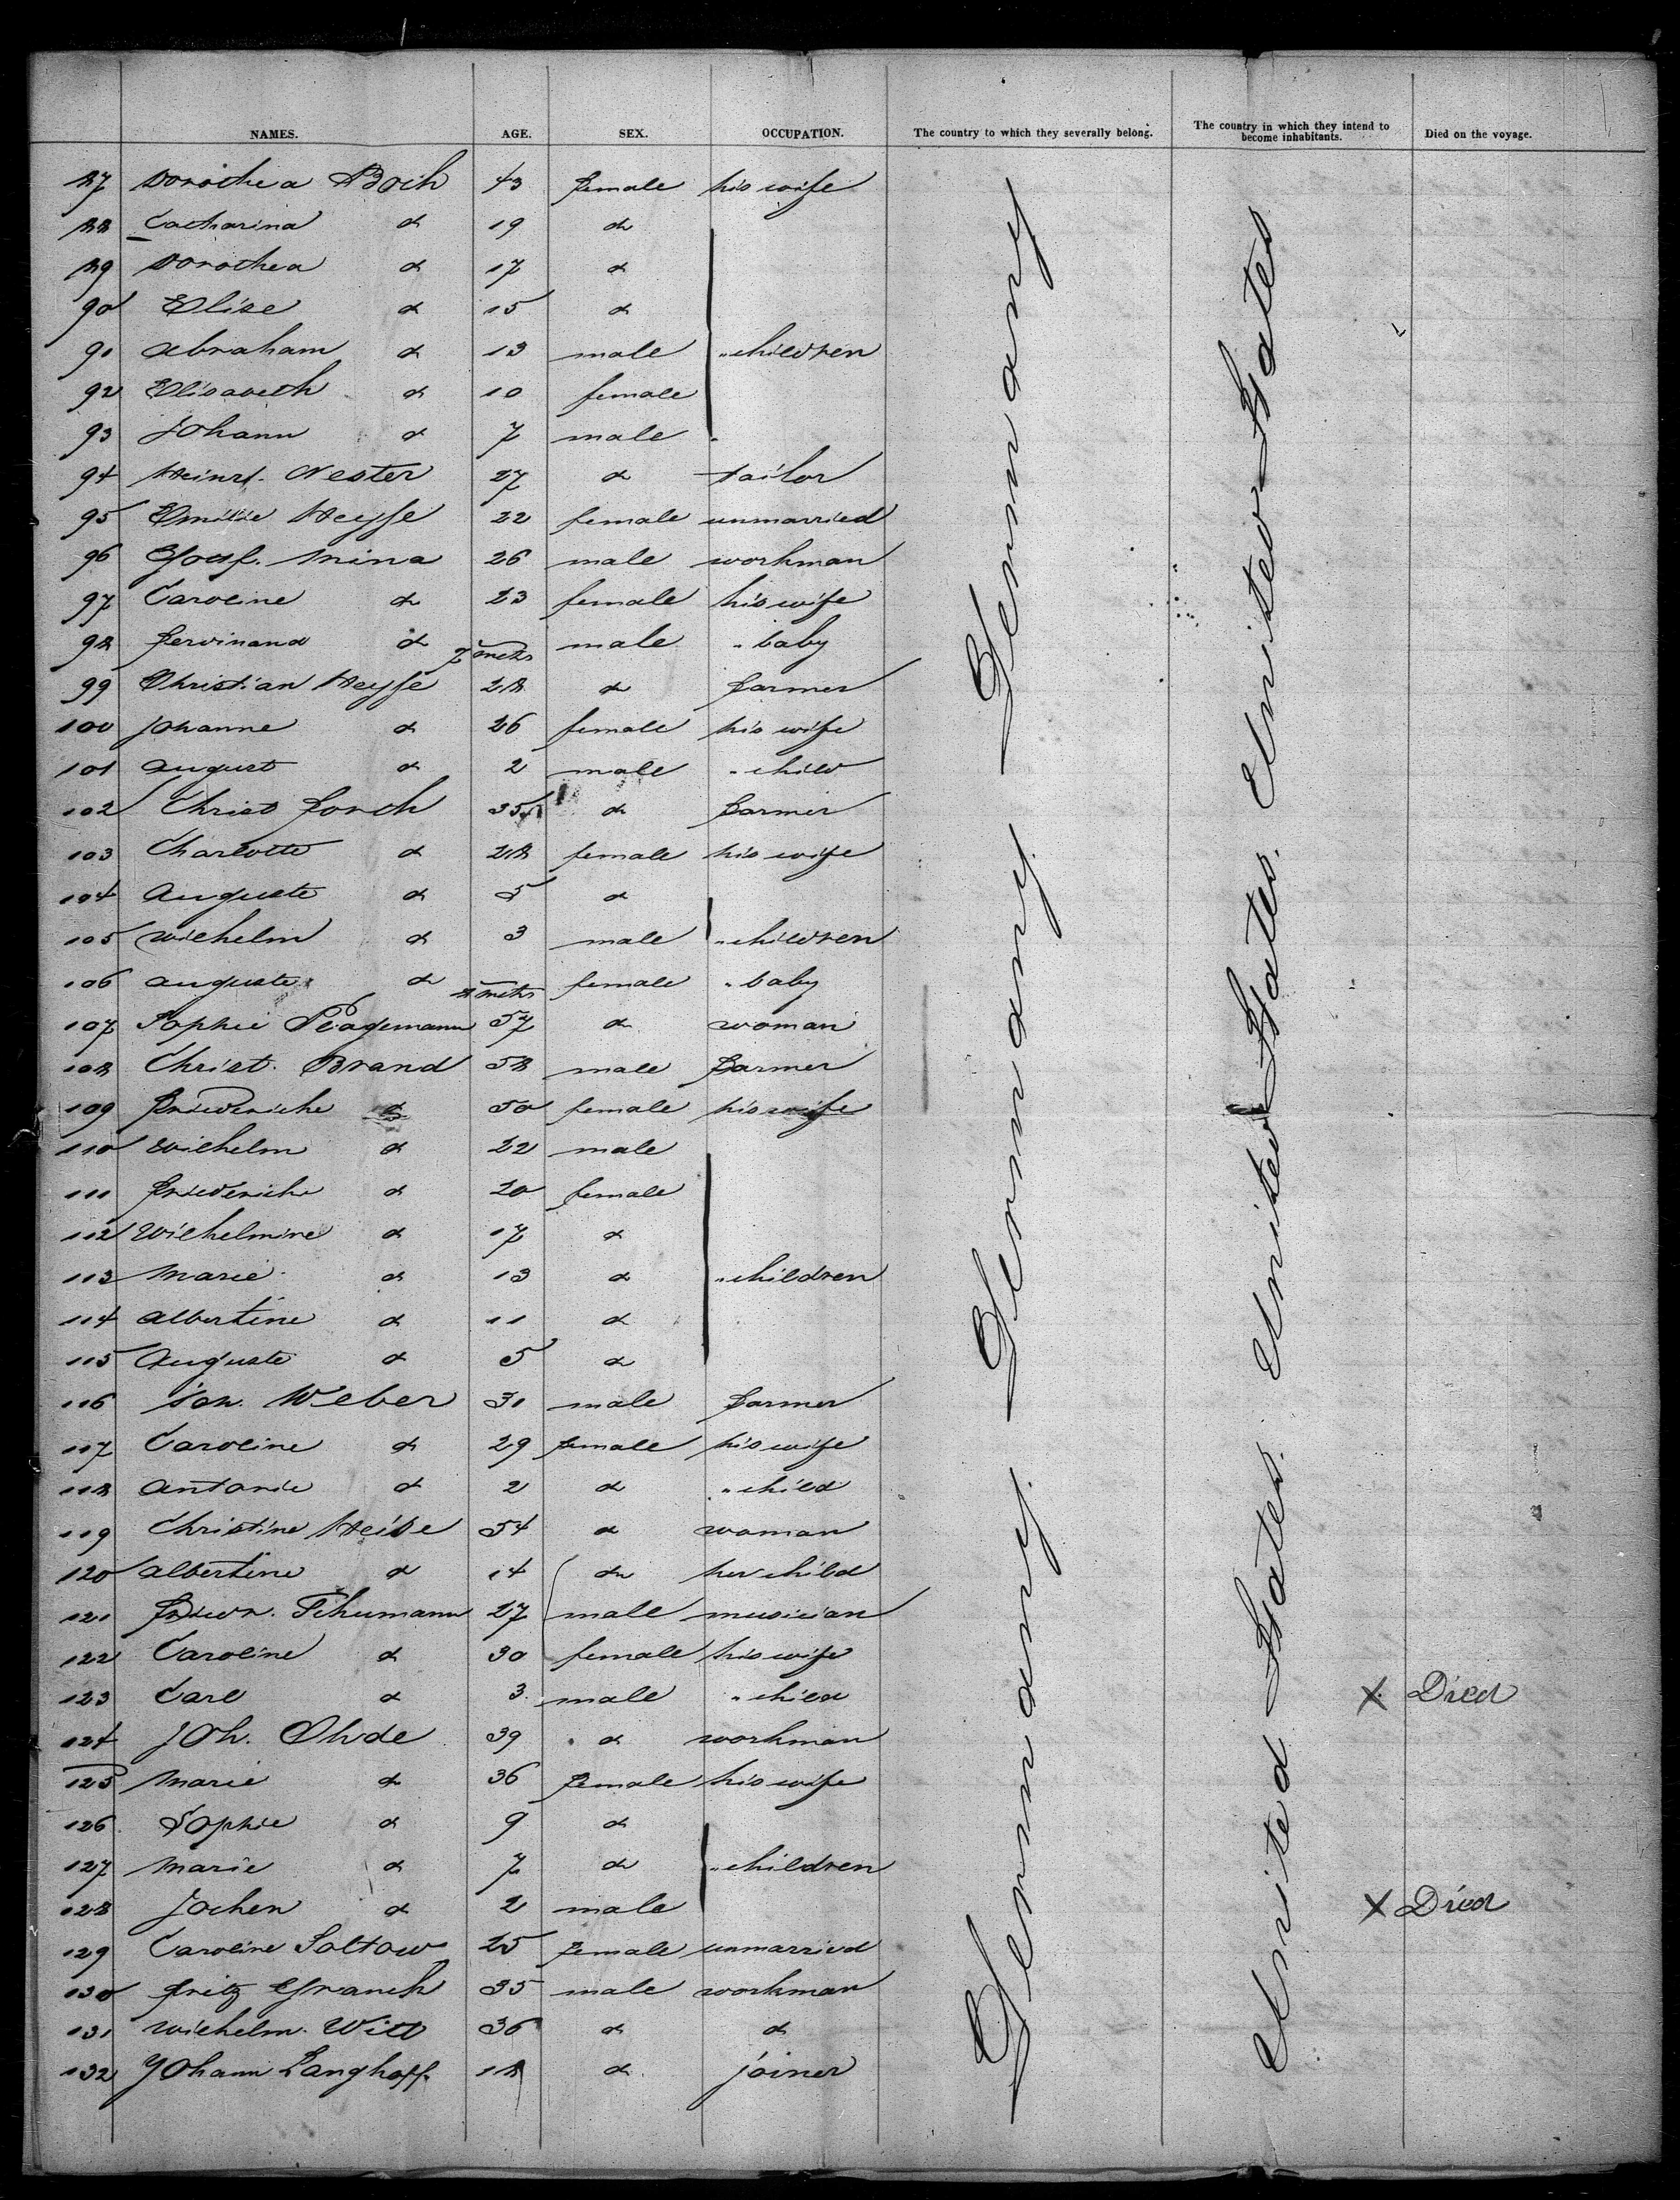 NAMES. AGE. SEX. OCCUPATION. The country to which they severally belong. The country in which they intend to become inhabitants. Died on the voyage.
87 Dorothea Boih 43 female his wife
88 Catharina do 19 do
89 Dorothea do 17 do
90 Elise do 15 do
91 Abraham do 13 male " children
92 Elisabeth do 10 female
93 Johann do 7 male
94 Heinr. Nester 27 do tailor
95 Emilie Heyse 22 female unmarried
96 Mina 26 male workman
97 Caroline do 23 female his wife
98 Ferdinand do 7 mths male " baby
99 Christian Heyse 28 do farmer
100 Johanne do 26 female his wife
101 August do 2 male " child
102 Christ Forch 35 do farmer
103 Charlotte do 28 female his wife
104 Auguste do 5 do
105 Wilhelm do 3 male " children
106 Auguste do mths female " baby
107 Sophie 57 do woman
108 Christ. Brand 58 male farmer
109 Friederiche do 50 female his wife
110 Wilhelm do 22 male
111 Friederiche do 20 female
112 Wilhelmine do 17 do
113 Marie do 13 do " children
114 Albertine do 11 do
115 Auguste do 5 do
116 Joh. Weber 31 male farmer
117 Caroline do 29 female his wife
118 Antonie do 2 do " child
119 Christine Heise 54 do woman
120 Albertine do 14 do her child
121 Friedr. Schumann 27 male musician
122 Caroline do 30 female his wife
123 Carl do 3 male " child X Died
124 Joh. Ohde 39 do workman
125 Marie do 36 female his wife
126 Sophie do 9 do
127 Marie do 7 do " children
128 Jochen do 2 male X Died
129 Caroline Soltow 25 female unmarried
130 Fritz 35 male workman
131 Wilhelm Witt 36 do do
132 Johann Langhoff 18 do joiner
Germany Germany Germany
United States United States United States